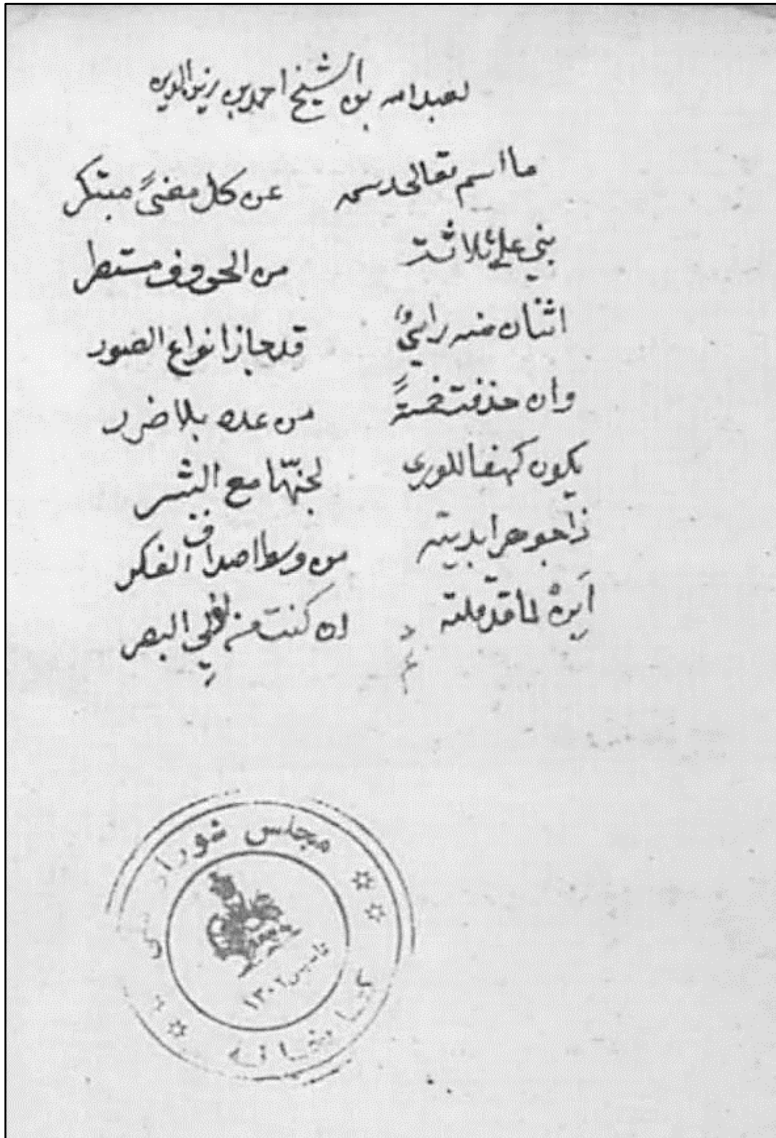 لعبد الله بن الشيخ احمد بن زين الدين
ما اسم تعالى رسمه عن كل معنىً مبتكر
بني على ثلاثة من الحروف مستطر
اثنان منه رايي قد حاز انواع الصور
وان حذفت خمسةً من عده بلا ضرر
يكون كهفا للورى لجنّها مع البشر
ذا جوهر ابديته من وسط اصداف الفكر
اَبِنْهُ لما قد قلته ان كنت من اهل البصر
مجلس شورای ملی
کتابخانه
تاسیس ١٣٠٢